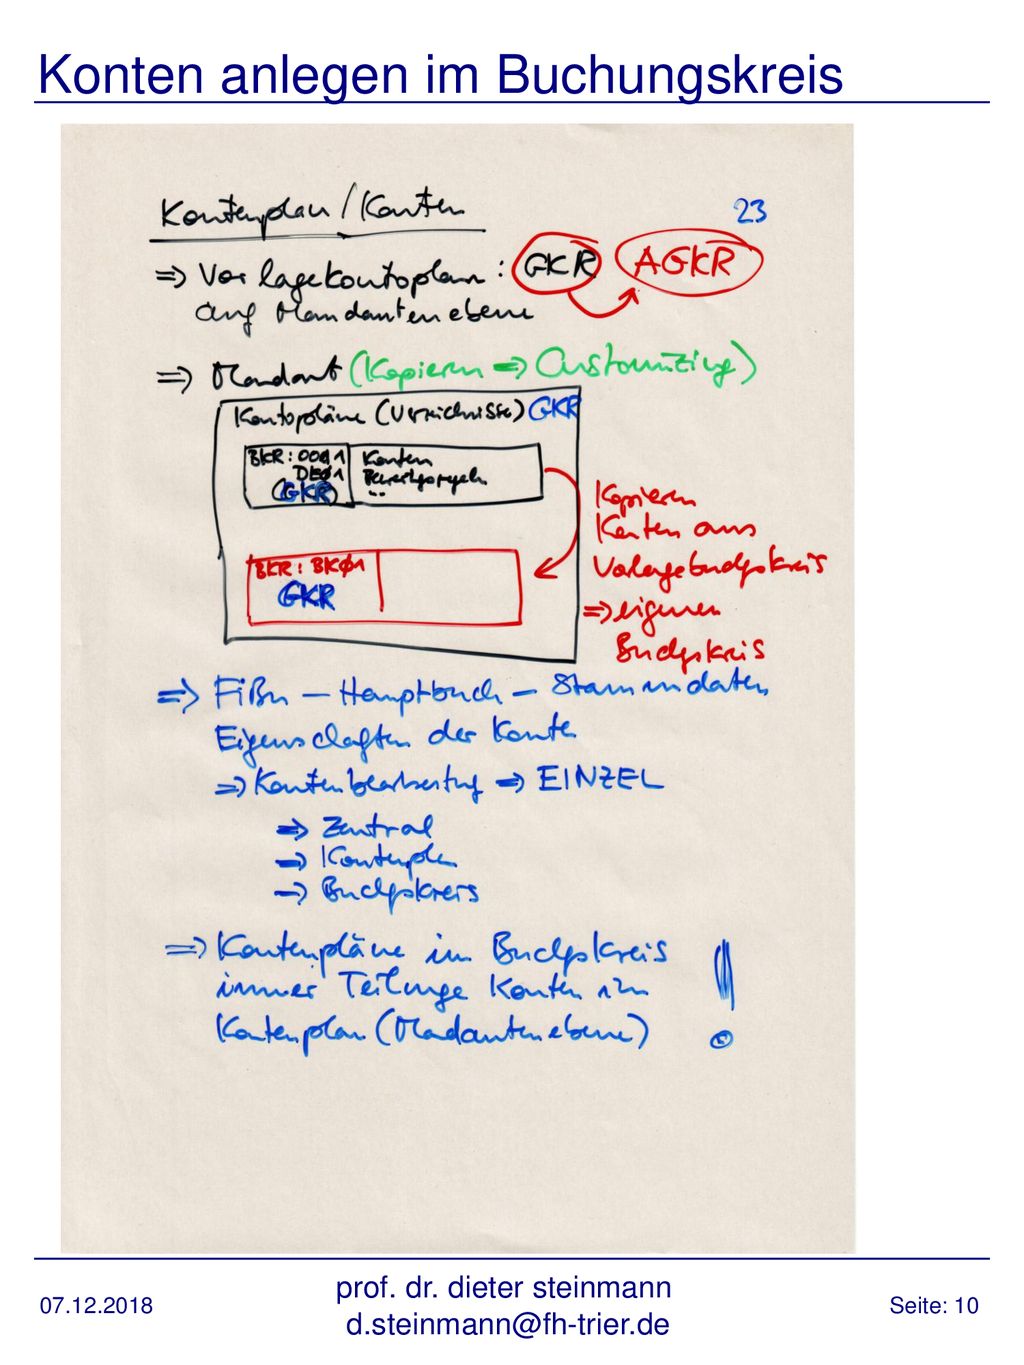 Konten anlegen im Buchungskreis
Kontenplan / Konten
23
=> Vorlagekontoplan : GKR AGKR
auf Mandantenebene
=> Mandant (Kopieren => Customizing)
Kontopläne (Verzeichnisse) GKR
BKR : 0001
DE01
(GKR)
Konten
...
Kopieren
Konten aus
Vorlagebuchgskreis
=> eigenen
Buchgskreis
BKR : BK01
GKR
=> FiBu – Hauptbuch – Stammdaten
Eigenschaften der Konten
=> Kontenbearbeitung => EINZEL
=> Zentral
=> Kontenplan
-> Buchgskreis
=> Kontenpläne im Buchgskreis
immer Teilmenge Konten zum
Kontenplan (Mandantenebene)
!
07.12.2018
prof. dr. dieter steinmann
d.steinmann@fh-trier.de
Seite: 10